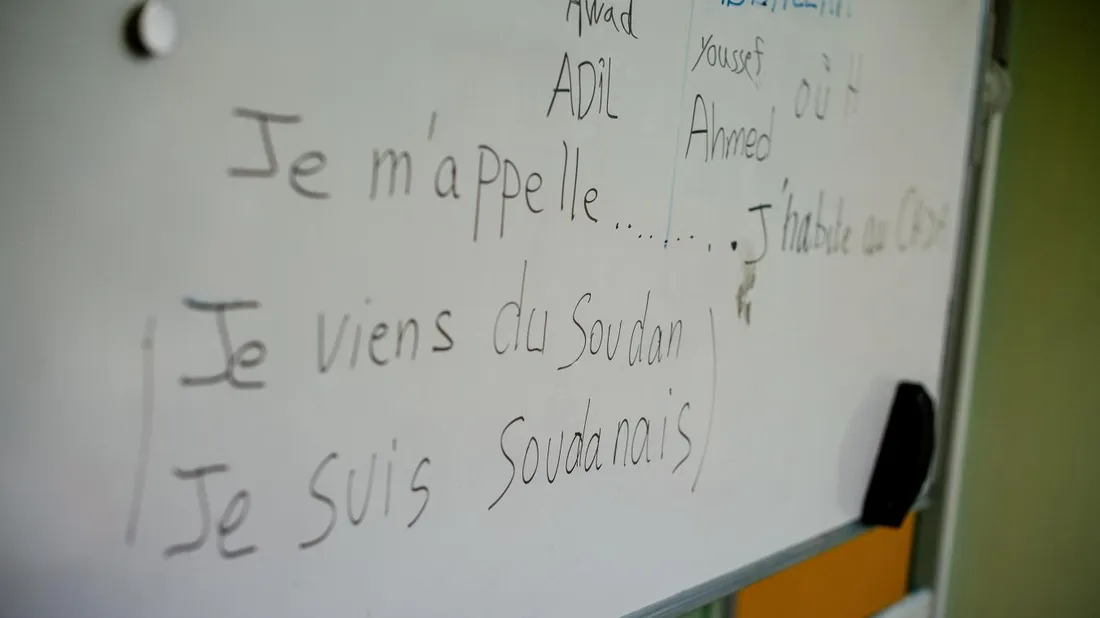 Awad
ADIL
Youssef
Ahmed
où
Je m'appelle...........
J'habite au
Je viens du Soudan
Je suis Soudanais